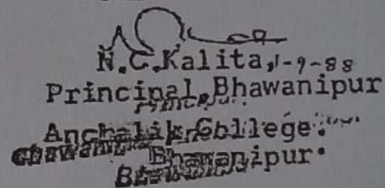 N.C.Kalita, 1-9-88
Principal, Bhawanipur
Anchalik College.
Bhawanipur.